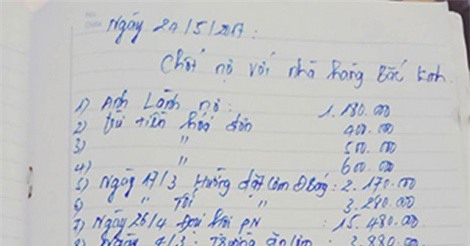 Ngày 27/5/2017:
Chốt nợ với nhà hàng Bắc Kinh.
1) Anh Lành nợ: 1.180.000
2) trả tiền hóa đơn 400.000
3) " 500.000
4) " 600.000
5) Ngày 17/3 Hưởng đặt cơm 2.170.000
6) " Tôi " 3.280.000
7) Ngày 26/4 Đại hội PN : 15.480.000
Ngày 4/3: Trưởng ăn 3.880.000